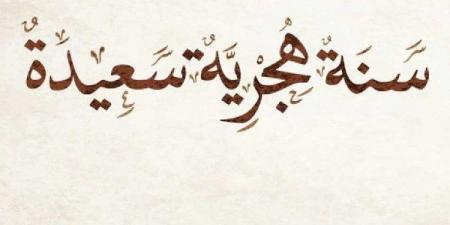 سَنَةٌ هِجْرِيَّةٌ سَعِيدَةٌ